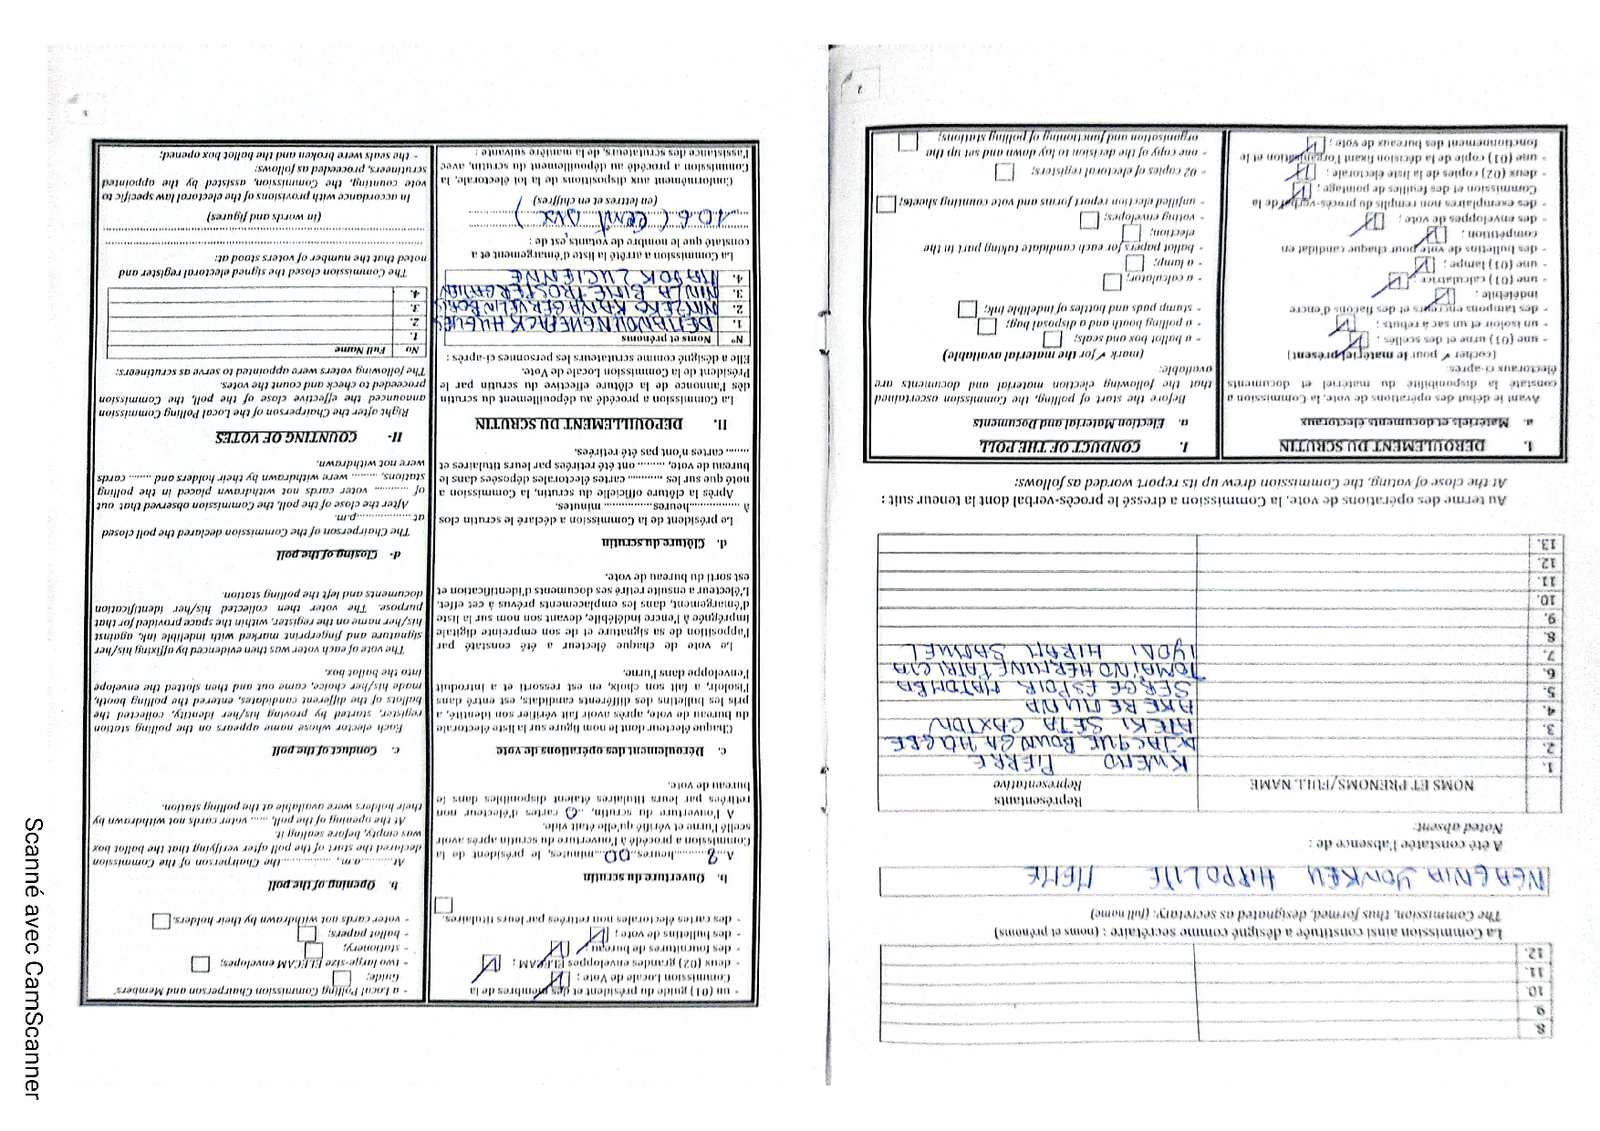 8
9
10.
11.
12.
La Commission ainsi constituée a désigné comme secrétaire : (noms et prénoms)
The Commission, thus formed, designated as secretary: (full name)
NGAGNIA YONKEU HIPPOLITE MEME
A été constatée l'absence de :
Noted absent:
NOMS ET PRENOMS/FULL NAME
Représentants
Representative
1. KWEMO PIERRE
2. BOUNGA HAGBE
3. ATEKI SETA CAXTON
4. AKERE MUNA
5. SERGE ESPOIR MATOMBA
6. TOMAÏNO HERMINE PATRICIA
7. IYODI HIRAM SAMUEL
8.
9.
10.
11.
12.
13.
Au terme des opérations de vote, la Commission a dressé le procès-verbal dont la teneur suit :
At the close of voting, the Commission drew up its report worded as follows:
I. DEROULEMENT DU SCRUTIN
a. Matériels et documents électoraux
Avant le début des opérations de vote, la Commission a
constaté la disponibilité du matériel et documents
électoraux ci-après:
(cocher ✓ pour le matériel présent)
- une (01) urne et des scellés ;
- un isoloir et un sac à rebuts ;
- des tampons encreurs et des flacons d'encre
indélébile ;
- une (01) calculatrice ;
- une (01) lampe ;
- des bulletins de vote pour chaque candidat en
compétition ;
- des enveloppes de vote ;
- des exemplaires non remplis du procès-verbal de la
Commission et des feuilles de pointage ;
- deux (02) copies de la liste électorale ;
- une (01) copie de la décision fixant l'organisation et le
fonctionnement des bureaux de vote ;
I. CONDUCT OF THE POLL
a. Election Material and Documents
Before the start of polling, the Commission ascertained
that the following election material and documents are
available:
(mark ✓ for the material available)
- a ballot box and seals;
- a polling booth and a disposal bag;
- stamp pads and bottles of indelible ink;
- a calculator;
- a lamp;
- ballot papers for each candidate taking part in the
election;
- voting envelopes;
- unfilled election report forms and vote counting sheets;
- 02 copies of electoral registers;
- one copy of the decision to lay down and set up the
organisation and functioning of polling stations;
2
- un (01) guide du président et des membres de la
Commission Locale de Vote ;
- deux (02) grandes enveloppes ELECAM ;
- des fournitures de bureau ;
- des bulletins de vote ;
- des cartes électorales non retirées par leurs titulaires.
b. Ouverture du scrutin
A...8...heures...00...minutes, le président de la
Commission a procédé à l'ouverture du scrutin après avoir
scellé l'urne et vérifié qu'elle était vide.
A l'ouverture du scrutin, ..0.. cartes d'électeur non
retirées par leurs titulaires étaient disponibles dans le
bureau de vote.
c. Déroulement des opérations de vote
Chaque électeur dont le nom figure sur la liste électorale
du bureau de vote, après avoir fait vérifier son identité, a
pris les bulletins des différents candidats, est entré dans
l'isoloir, a fait son choix, en est ressorti et a introduit
l'enveloppe dans l'urne.
Le vote de chaque électeur a été constaté par
l'apposition de sa signature et de son empreinte digitale
imprégnée à l'encre indélébile, devant son nom sur la liste
d'émargement, dans les emplacements prévus à cet effet.
L'électeur a ensuite retiré ses documents d'identification et
est sorti du bureau de vote.
d. Clôture du scrutin
Le président de la Commission a déclaré le scrutin clos
à ............heures............ minutes.
Après la clôture officielle du scrutin, la Commission a
noté que sur les ......... cartes électorales déposées dans le
bureau de vote, ........ ont été retirées par leurs titulaires et
...... cartes n'ont pas été retirées.
II. DEPOUILLEMENT DU SCRUTIN
La Commission a procédé au dépouillement du scrutin
dès l'annonce de la clôture effective du scrutin par le
Président de la Commission Locale de Vote.
Elle a désigné comme scrutateurs les personnes ci-après :
N° Noms et prénoms
1. HUGUES
2. KANA
3. NINLA BIME PROSPER GAITAN
4. MAGOK LUCIENNE
La Commission a arrêté la liste d'émargement et a
constaté que le nombre de votants est de :
106 (Cent Six)
(en lettres et en chiffres)
Conformément aux dispositions de la loi électorale, la
Commission a procédé au dépouillement du scrutin, avec
l'assistance des scrutateurs, de la manière suivante :
- a Local Polling Commission Chairperson and Members'
Guide;
- two large-size ELECAM envelopes;
- stationery;
- ballot papers;
- voter cards not withdrawn by their holders.
b. Opening of the poll
At.........a.m, ............the Chairperson of the Commission
declared the start of the poll after verifying that the ballot box
was empty, before sealing it.
At the opening of the poll, ..... voter cards not withdrawn by
their holders were available at the polling station.
c. Conduct of the poll
Each elector whose name appears on the polling station
register, started by proving his/her identity, collected the
ballots of the different candidates, entered the polling booth,
made his/her choice, came out and then slotted the envelope
into the ballot box.
The vote of each voter was then evidenced by affixing his/her
signature and fingerprint marked with indelible ink, against
his/her name on the register, within the space provided for that
purpose. The voter then collected his/her identification
documents and left the polling station.
d- Closing of the poll
The Chairperson of the Commission declared the poll closed
at ................p.m.
After the close of the poll, the Commission observed that out
of ......... voter cards not withdrawn placed in the polling
stations, ........ were withdrawn by their holders and ....... cards
were not withdrawn.
II- COUNTING OF VOTES
Right after the Chairperson of the Local Polling Commission
announced the effective close of the poll, the Commission
proceeded to check and count the votes.
The following voters were appointed to serve as scrutineers:
No Full Name
1.
2.
3.
4.
The Commission closed the signed electoral register and
noted that the number of voters stood at:
(in words and figures)
In accordance with provisions of the electoral law specific to
vote counting, the Commission, assisted by the appointed
scrutineers, proceeded as follows:
- the seals were broken and the ballot box opened;
3
Scanné avec CamScanner